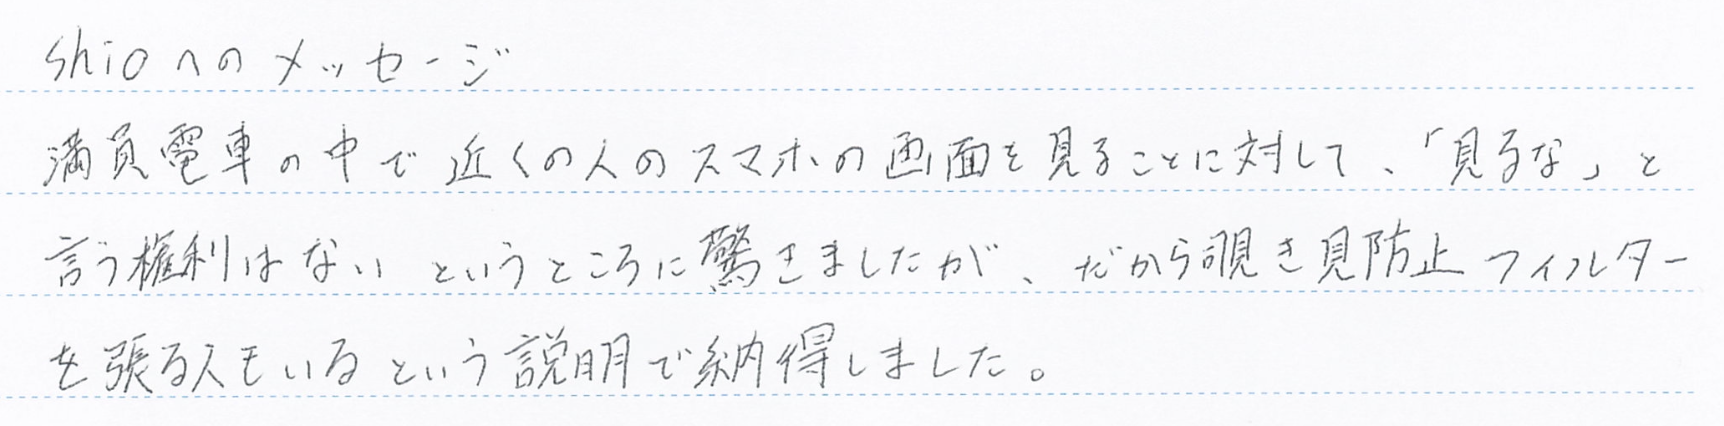 shioへのメッセージ
満員電車の中で近くの人のスマホの画面を見ることに対して、「見るな」と
言う権利はないというところに驚きましたが、だから覗き見防止フィルター
を張る人もいるという説明で納得しました。